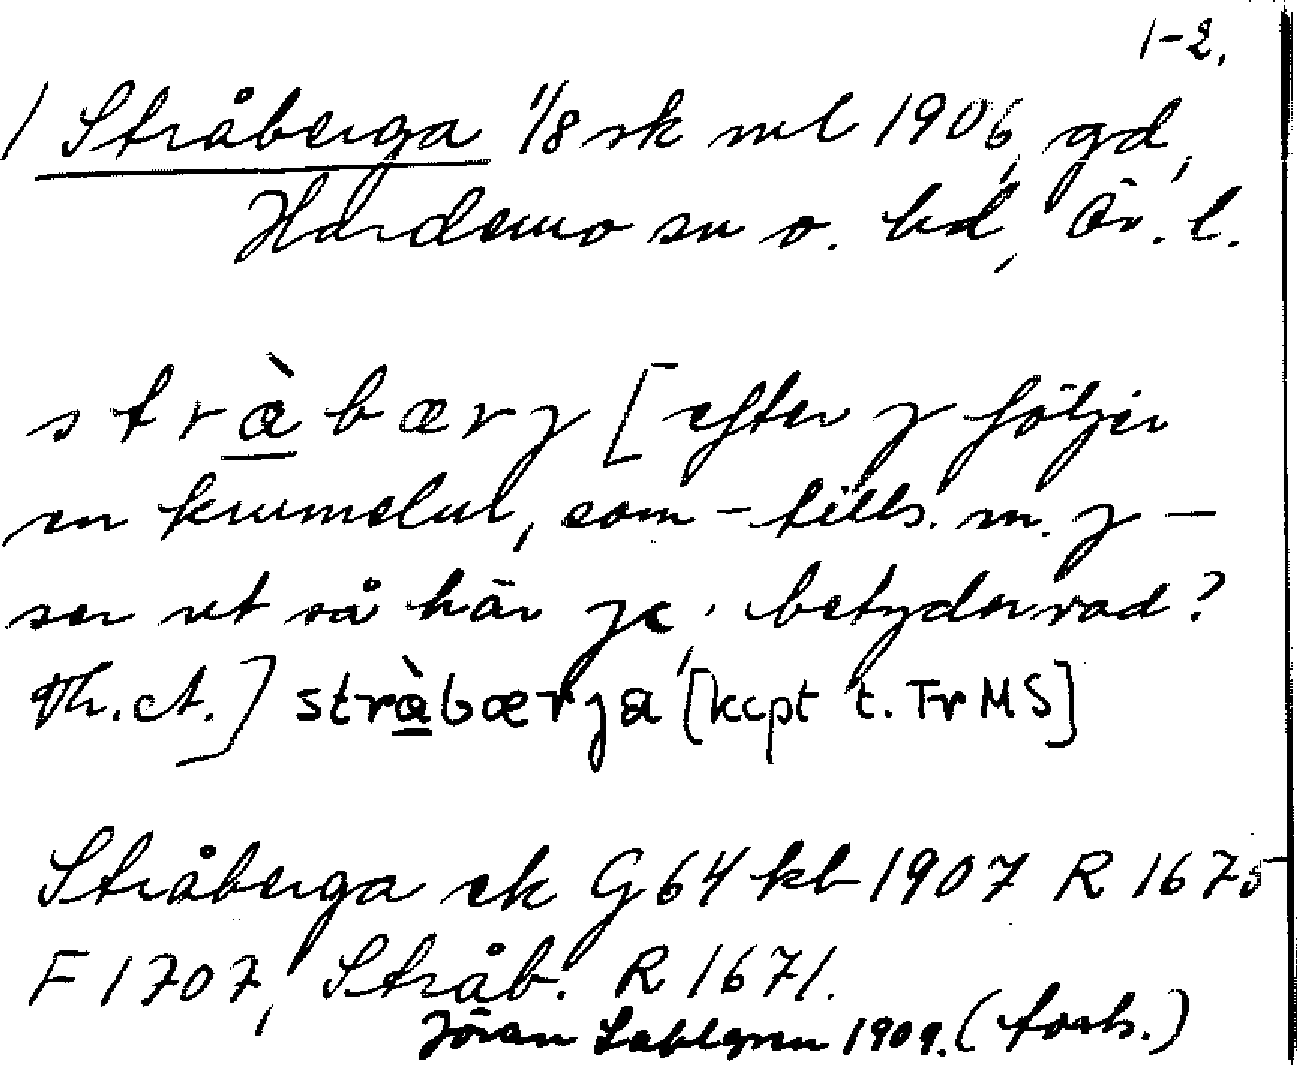 1-2.
1 Stråberga 1/8 sk ml 1906, gd,
Hardemo sn o. hd, Ör. l.
stræ̀bærj [efter j följer
en krumelur, som - tills. m. j -
ser ut så här jc, betyder vad?
Th. ct.] stràbærja [kcpt t. Tr MS]
Stråberga ek G 64 kb 1907 R 1675
F 1707, Stråb. R 1671.
Jöran Sahlgren 1909. (forts.)